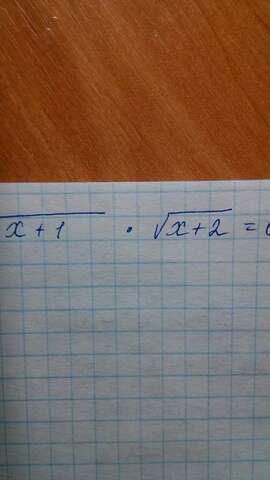 x + 1 · √x+2 =